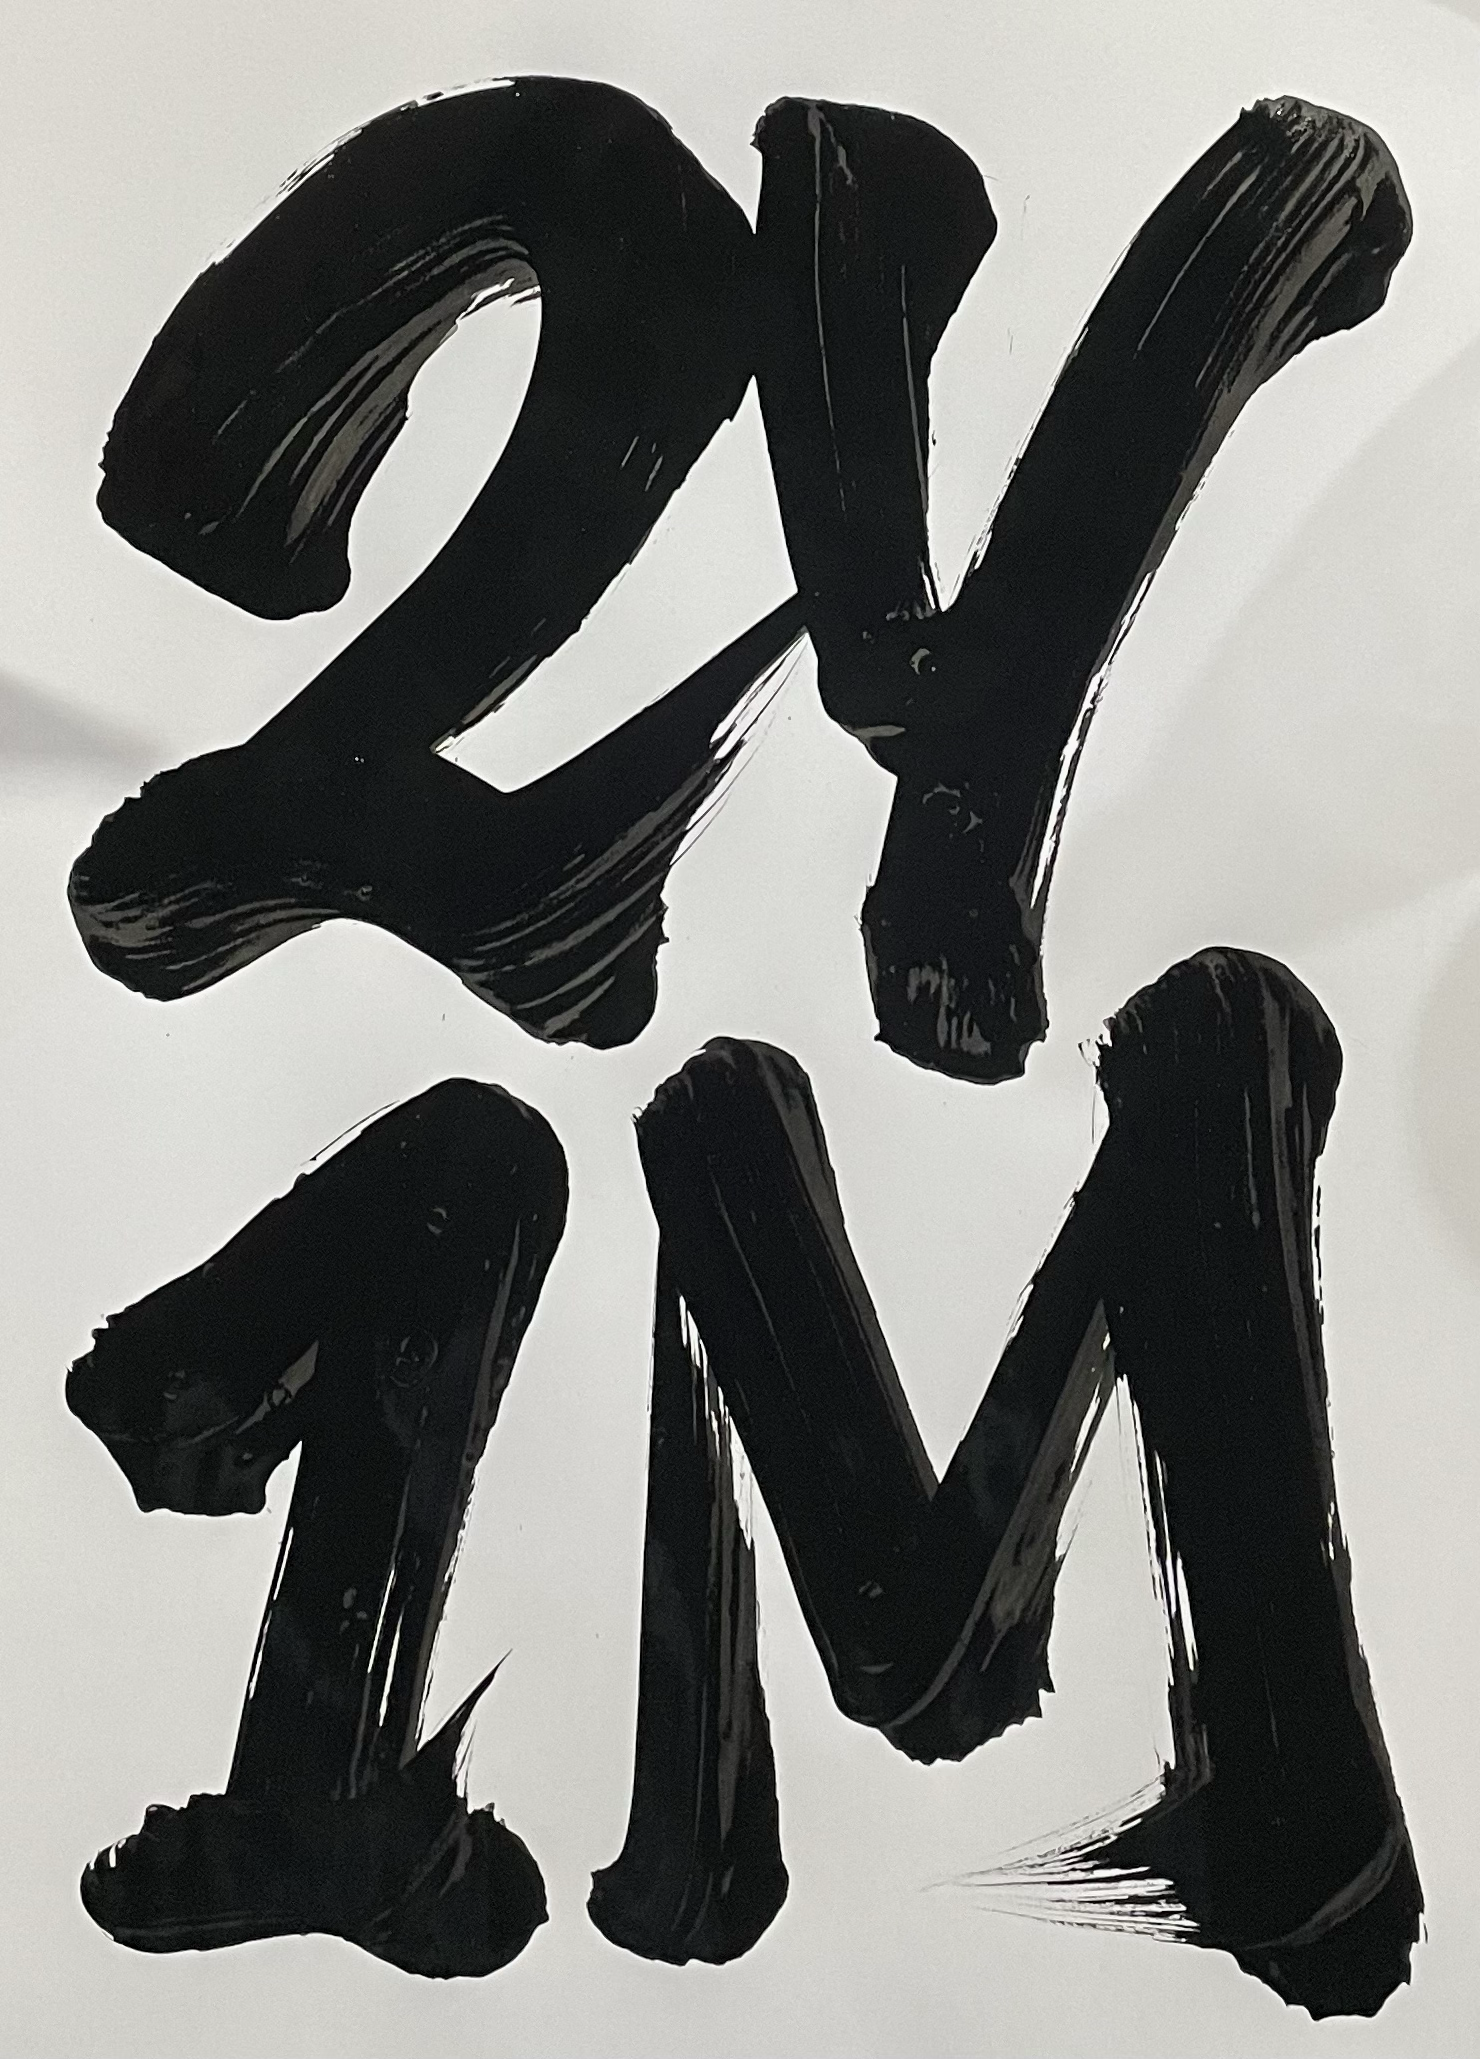 2Y
1M